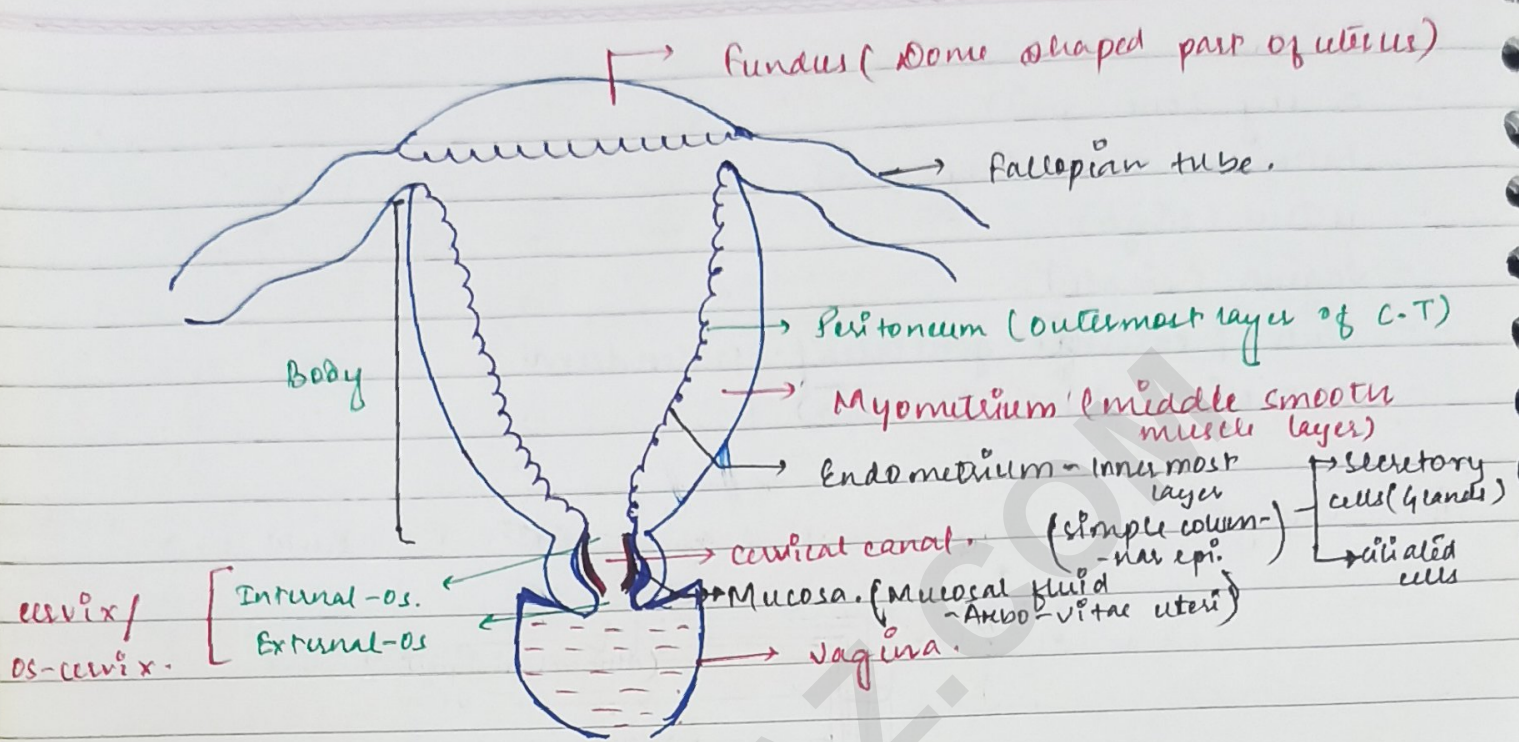 Fundus (Dome shaped part of uterus)
Fallopian tube.
Body
Peritoneum (outermost layer of C.T)
Myometrium (middle smooth
muscle layer)
Endometrium - Inner most
layer
(simple colum-
-nar epi.)
secretory
cells (Glands)
ciliated
cells
cervical canal.
Mucosa. (Mucosal fluid
-Arbo-vitae uteri)
Internal-os.
External-os
cervix/
os-cervix.
vagina.
Z.COM